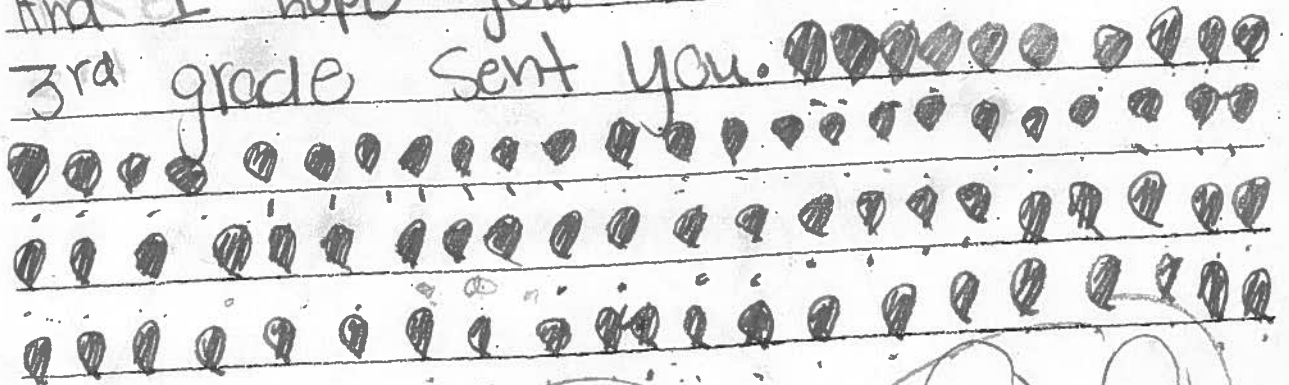 And I hope you
3rd grade sent you.